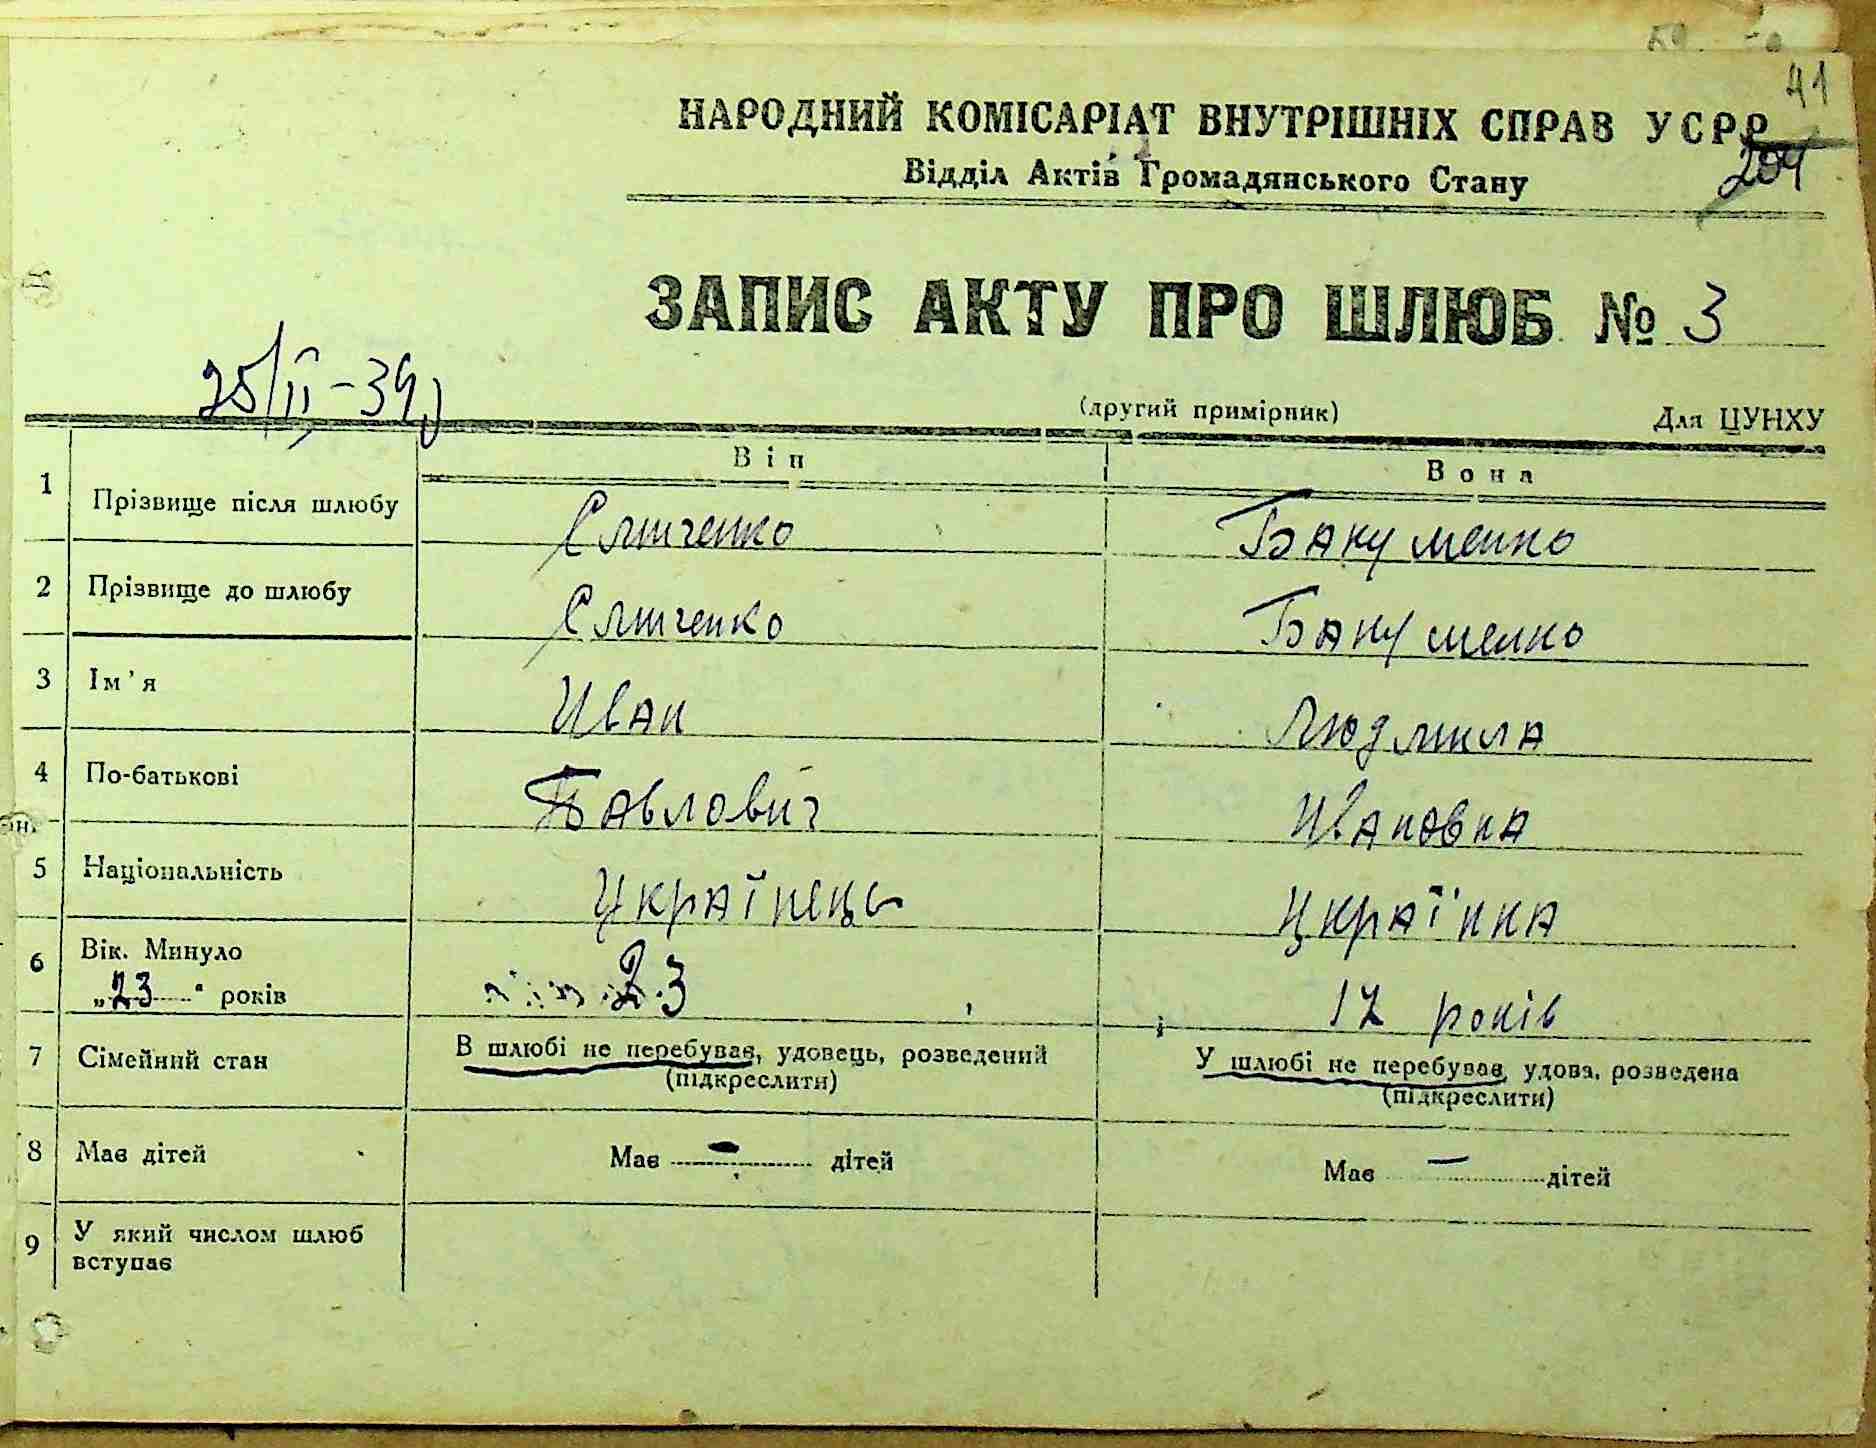 41
НАРОДНИЙ КОМІСАРІАТ ВНУТРІШНІХ СПРАВ УСРР
204
Відділ Актів Громадянського Стану
ЗАПИС АКТУ ПРО ШЛЮБ № 3
25/II-39
(другий примірник) Для ЦУНХУ
Він Вона
1 Прізвище після шлюбу Бакуменко
2 Прізвище до шлюбу Бакуменко
3 Ім'я Иван Людмила
4 По-батькові Павлович Ивановна
5 Національність Українець Українка
6 Вік. Минуло
„23" років 23 17 років
7 Сімейний стан В шлюбі не перебував, удовець, розведений У шлюбі не перебував, удова, розведена
(підкреслити) (підкреслити)
8 Має дітей Має - дітей Має - дітей
9 У який числом шлюб
вступає